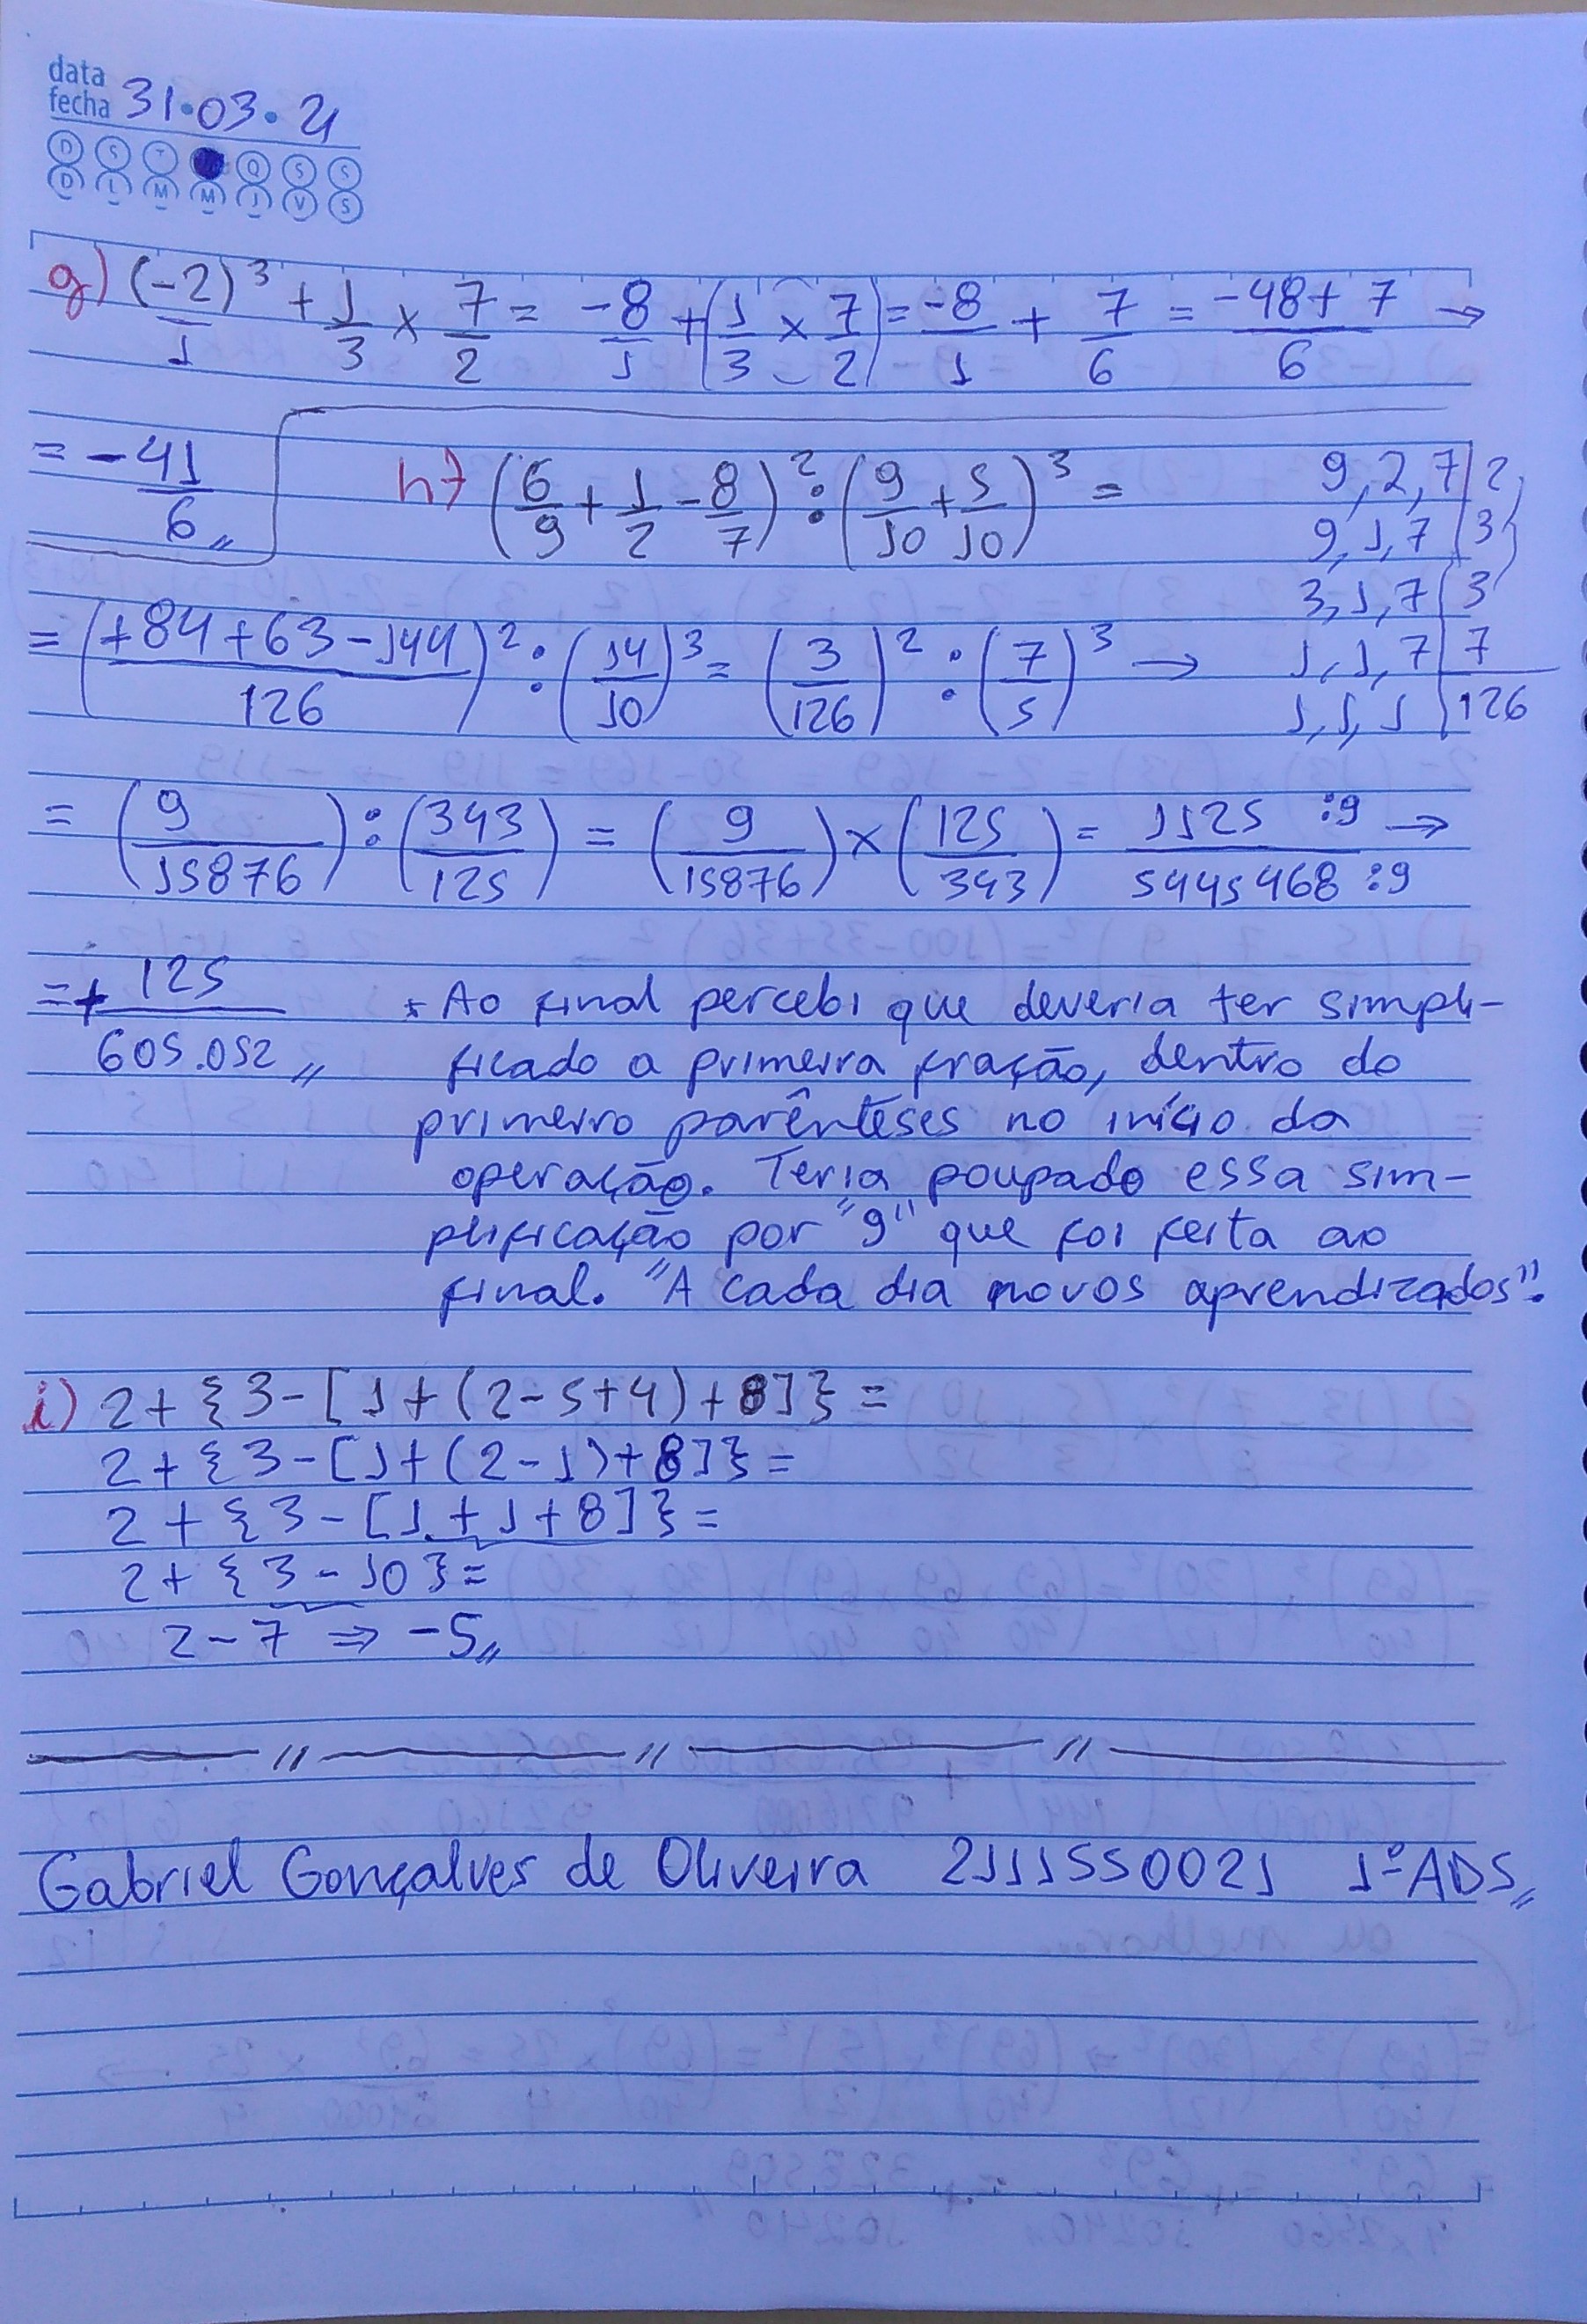 data
fecha 31.03.21
D S T Q S S
D L M M J V S
g) (-2)³/1 + 1/3 × 7/2 = -8/1 + (1/3 × 7/2) = -8/1 + 7/6 = -48+7/6 →
= -41/6 〃
h) (6/9 + 1/2 - 8/7)² : (9/10 + 5/10)³ =
9,2,7|2
9,1,7|3
3,1,7|3
1,1,7|7
1,1,1|126
= (+84+63-144/126)² : (14/10)³ = (3/126)² : (7/5)³ →
= (9/15876) : (343/125) = (9/15876) × (125/343) = 1125 :9/5445468 :9 →
= + 125/605.052 〃
* Ao final percebi que deveria ter simpli-
ficado a primeira fração, dentro do
primeiro parênteses no início da
operação. Teria poupado essa sim-
plificação por "9" que foi feita ao
final. "A cada dia novos aprendizados".
i) 2+{3-[1+(2-5+4)+8]}=
2+{3-[1+(2-1)+8]}=
2+{3-[1+1+8]}=
2+{3-10}=
2-7 ⇒ -5〃
Gabriel Gonçalves de Oliveira 2111550021 1º ADS〃